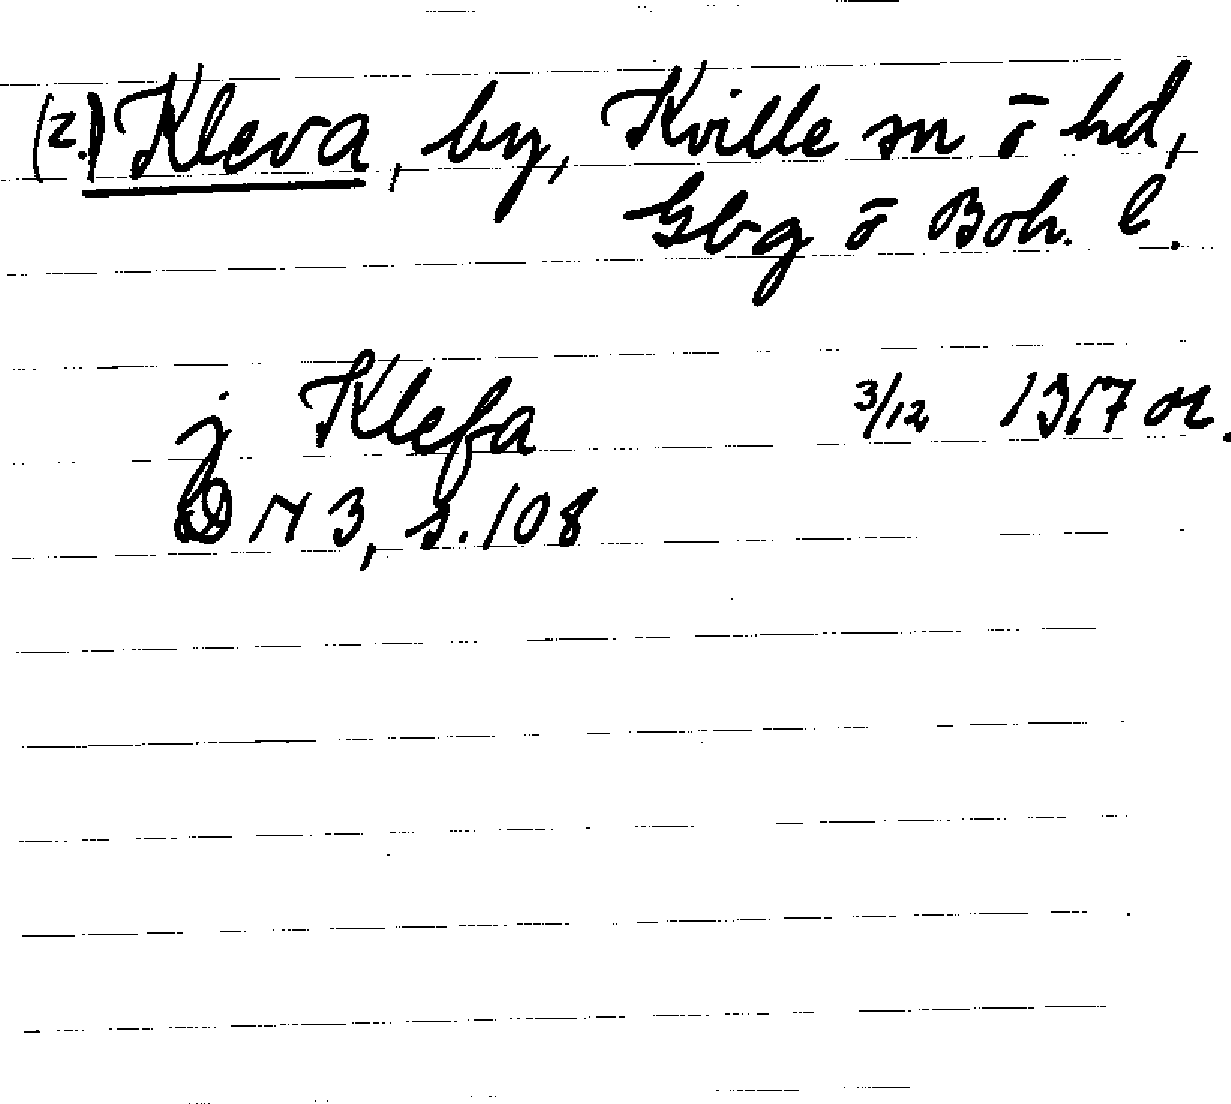 (2.) Kleva, by, Kville sn o hd,
Gbg o Boh. l.
j Klefa 3/12 1367 or.
DN 3, s. 108